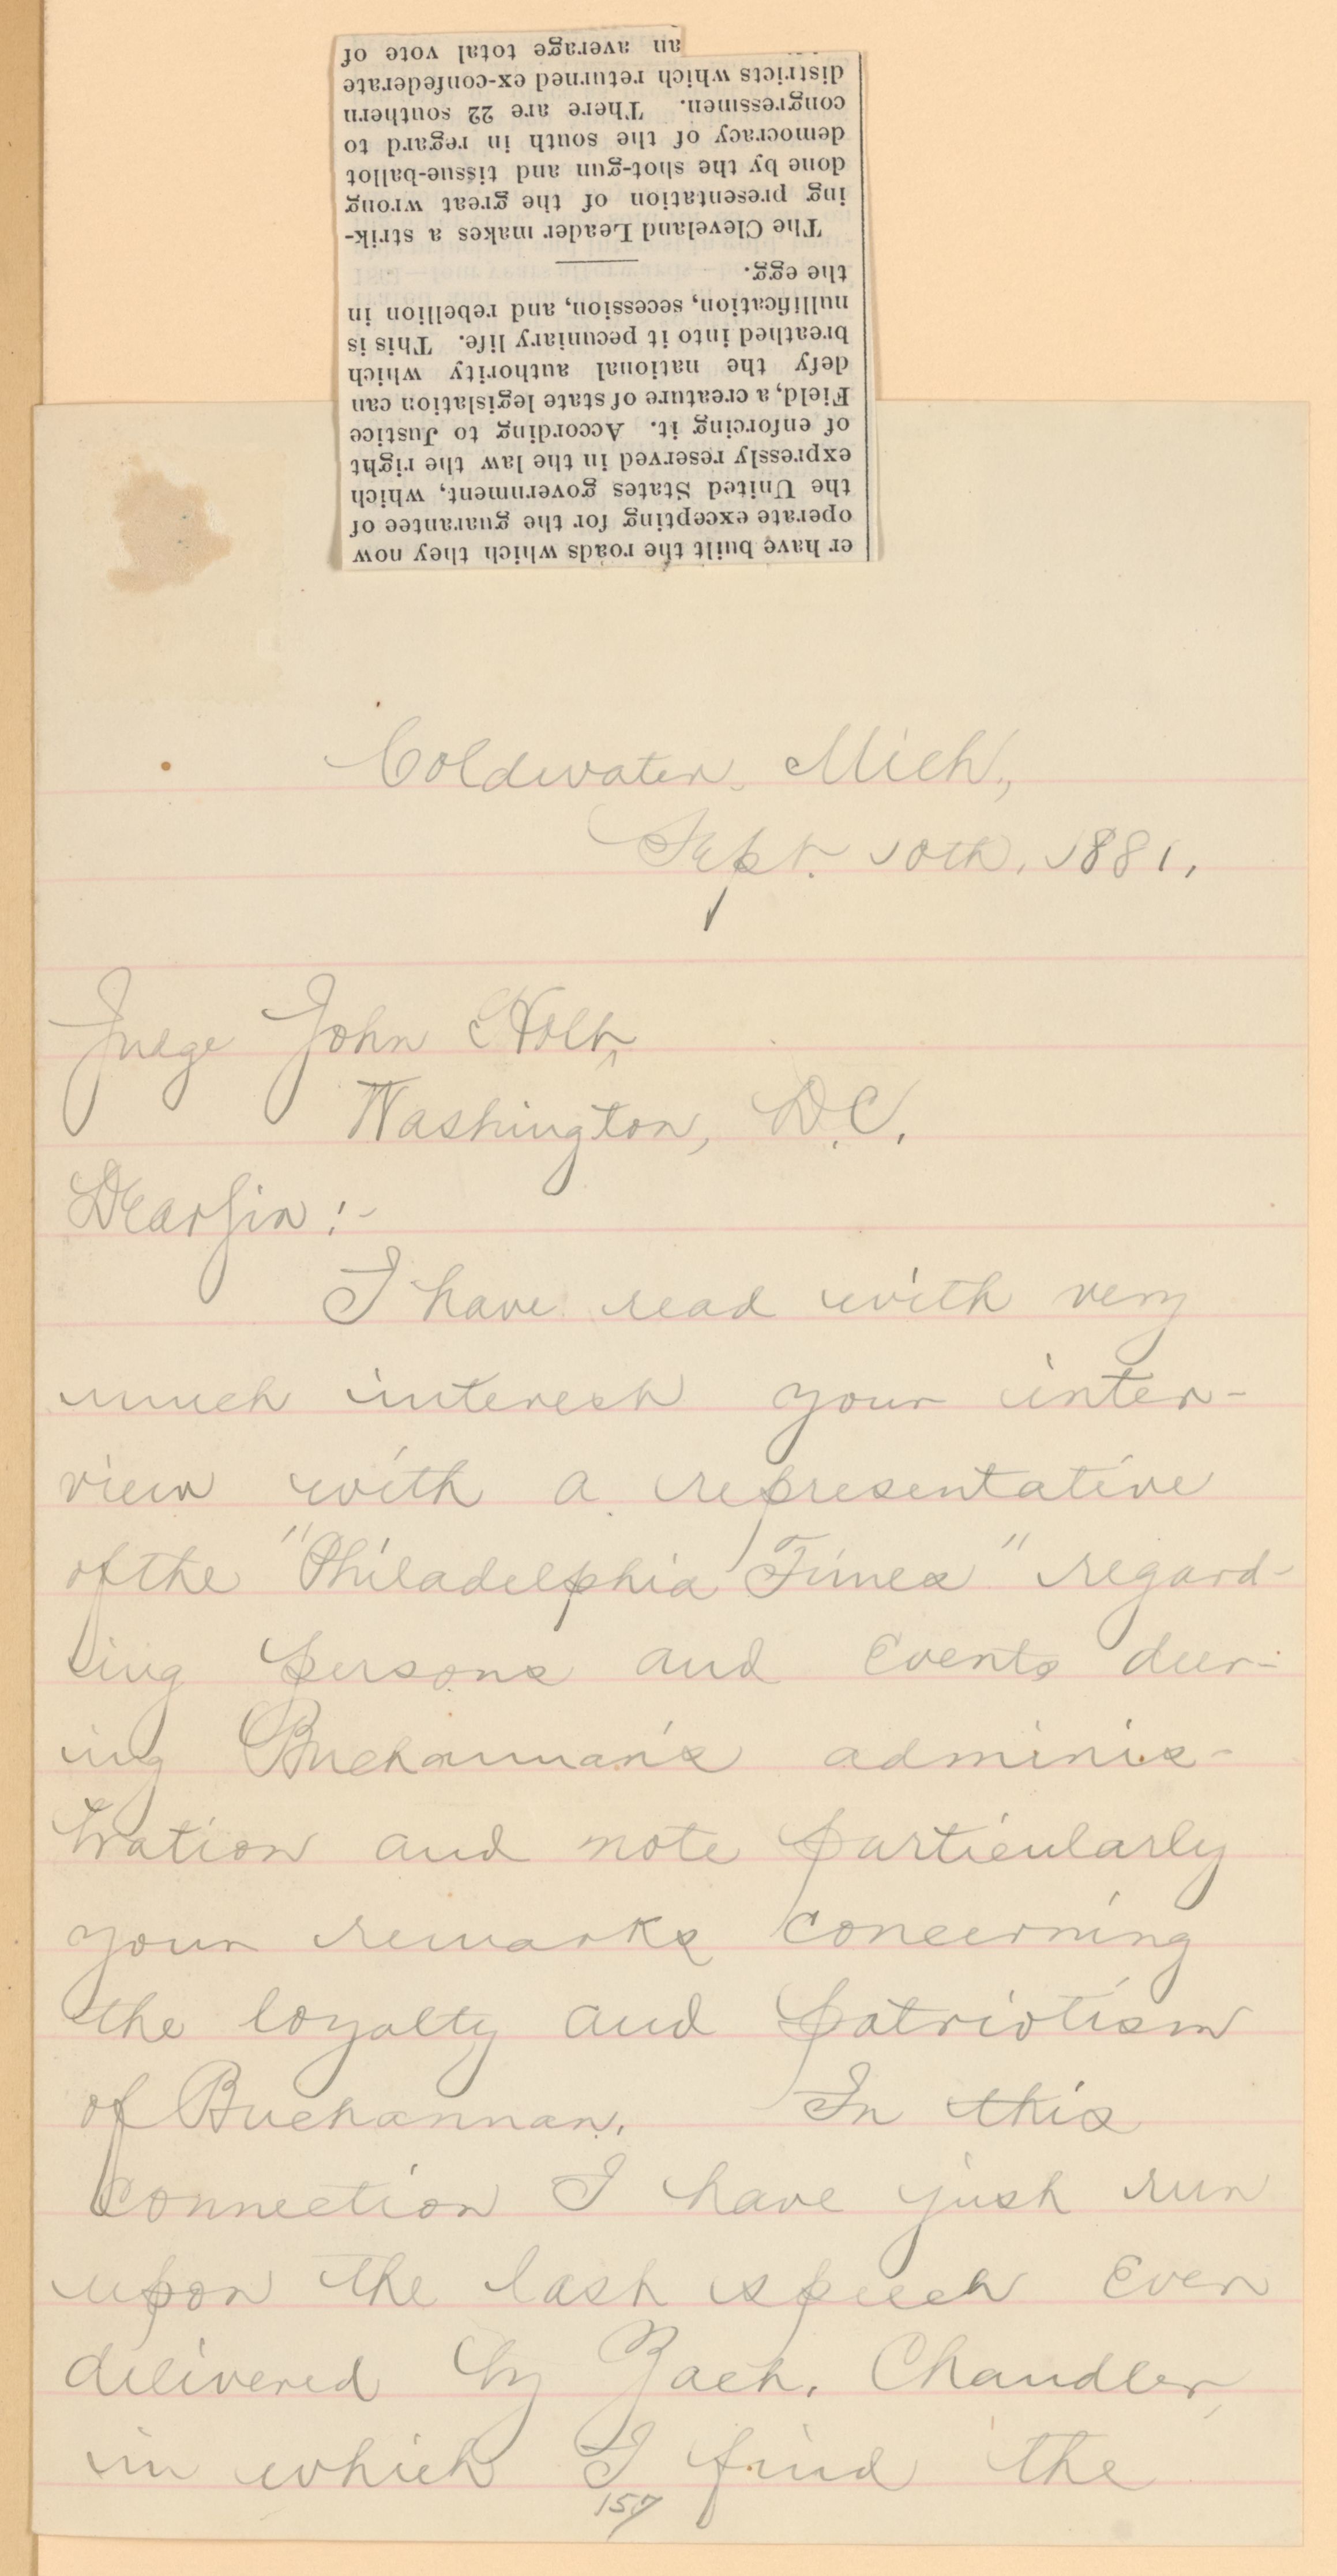 er have built the roads which they now
operate excepting for the guarantee of
the United States government, which
expressly reserved in the law the right
of enforcing it. According to Justice
Field, a creature of state legislation can
defy the national authority which
breathed into it pecuniary life. This is
nullification, secession, and rebellion in
the egg.
The Cleveland Leader makes a strik-
ing presentation of the great wrong
done by the shot-gun and tissue-ballot
democracy of the south in regard to
congressmen. There are 22 southern
districts which returned ex-confederate
an average total vote of
Coldwater, Mich.,
Sept. 10th, 1881.
Judge John Holt,
Washington, D.C.
Dear Sir :-
I have read with very
much interest your inter-
view with a representative
of the "Philadelphia Times" regard-
ing persons and events dur-
ing Buchannan's adminis-
tration and note particularly
your remarks concerning
the loyalty and patriotism
of Buchannan. In this
connection I have just run
upon the last speech ever
delivered by Zach. Chandler,
in which I find the
157